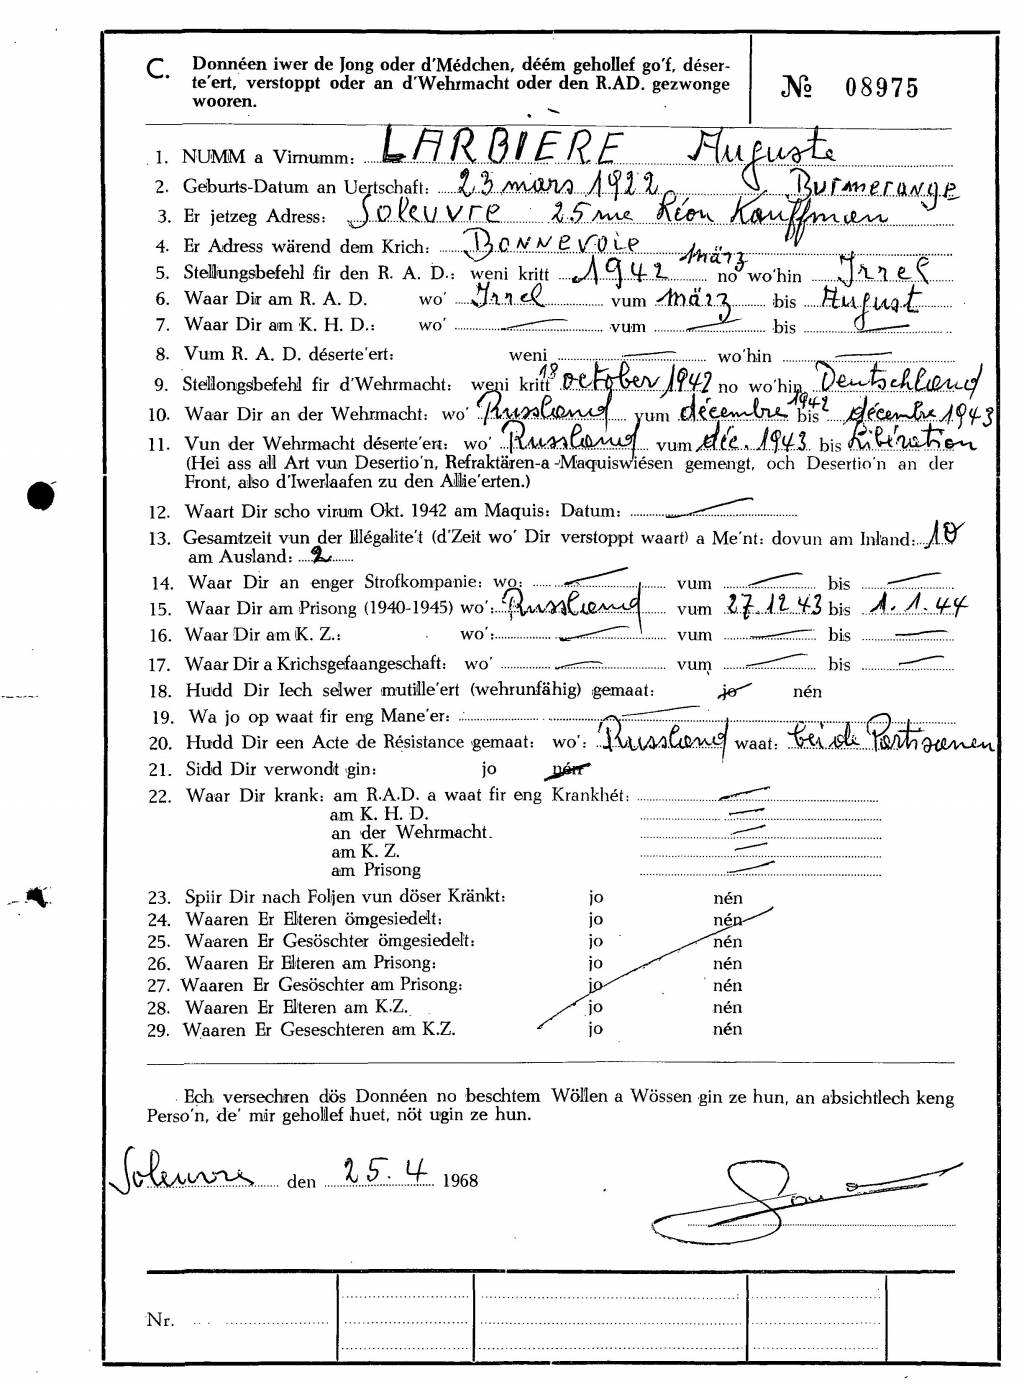 C. Donnéen iwer de Jong oder d'Médchen, déém gehollef go'f, déser-
te'ert, verstoppt oder an d'Wehrmacht oder den R.AD. gezwonge
wooren.
№ 08975
1. NUMM a Virnumm: LARBIERE Auguste
2. Geburts-Datum an Uertschaft: 23 mars 1922 Burmerange
3. Er jetzeg Adress: Soleuvre 25 rue Léon Kauffman
4. Er Adress wärend dem Krich: Bonnevoie
5. Stellungsbefehl fir den R. A. D.: weni kritt März 1942 no wo'hin Irrel
6. Waar Dir am R. A. D. wo' Irrel vum März bis August
7. Waar Dir am K. H. D.: wo' — vum — bis —
8. Vum R. A. D. déserte'ert: weni — wo'hin —
9. Stellongsbefehl fir d'Wehrmacht: weni kritt 18 october 1942 no wo'hin Deutschland
10. Waar Dir an der Wehrmacht: wo' Russland vum décembre 1942 bis décembre 1943
11. Vun der Wehrmacht déserte'ert: wo' Russland vum déc. 1943 bis Libération
(Hei ass all Art vun Desertio'n, Refraktären-a -Maquiswiésen gemengt, och Desertio'n an der
Front, also d'Iwerlaafen zu den Allie'erten.)
12. Waart Dir scho virum Okt. 1942 am Maquis: Datum: —
13. Gesamtzeit vun der Illégalite't (d'Zeit wo' Dir verstoppt waart) a Me'nt: dovun am Inland: 10
am Ausland: 2
14. Waar Dir an enger Strofkompanie: wo: — vum — bis —
15. Waar Dir am Prisong (1940-1945) wo': Russland vum 27.12 43 bis 1. 1. 44
16. Waar Dir am K. Z.: wo': — vum — bis —
17. Waar Dir a Krichsgefaangeschaft: wo' — vum — bis —
18. Hudd Dir Iech selwer mutille'ert (wehrunfähig) gemaat: jo nén
19. Wa jo op waat fir eng Mane'er: —
20. Hudd Dir een Acte de Résistance gemaat: wo': Russland waat: bei de Partisanen
21. Sidd Dir verwondt gin: jo nén
22. Waar Dir krank: am R.A.D. a waat fir eng Krankhét: —
am K. H. D. —
an der Wehrmacht. —
am K. Z. —
am Prisong —
23. Spiir Dir nach Foljen vun döser Kränkt: jo nén
24. Waaren Er Elteren ömgesiedelt: jo nén
25. Waaren Er Gesöschter ömgesiedelt: jo nén
26. Waaren Er Elteren am Prisong: jo nén
27. Waaren Er Gesöschter am Prisong: jo nén
28. Waaren Er Elteren am K.Z. jo nén
29. Waaren Er Geseschteren am K.Z. jo nén
Ech versechren dös Donnéen no beschtem Wöllen a Wössen gin ze hun, an absichtlech keng
Perso'n, de' mir gehollef huet, nöt ugin ze hun.
Soleuvre den 25. 4 1968
Nr.